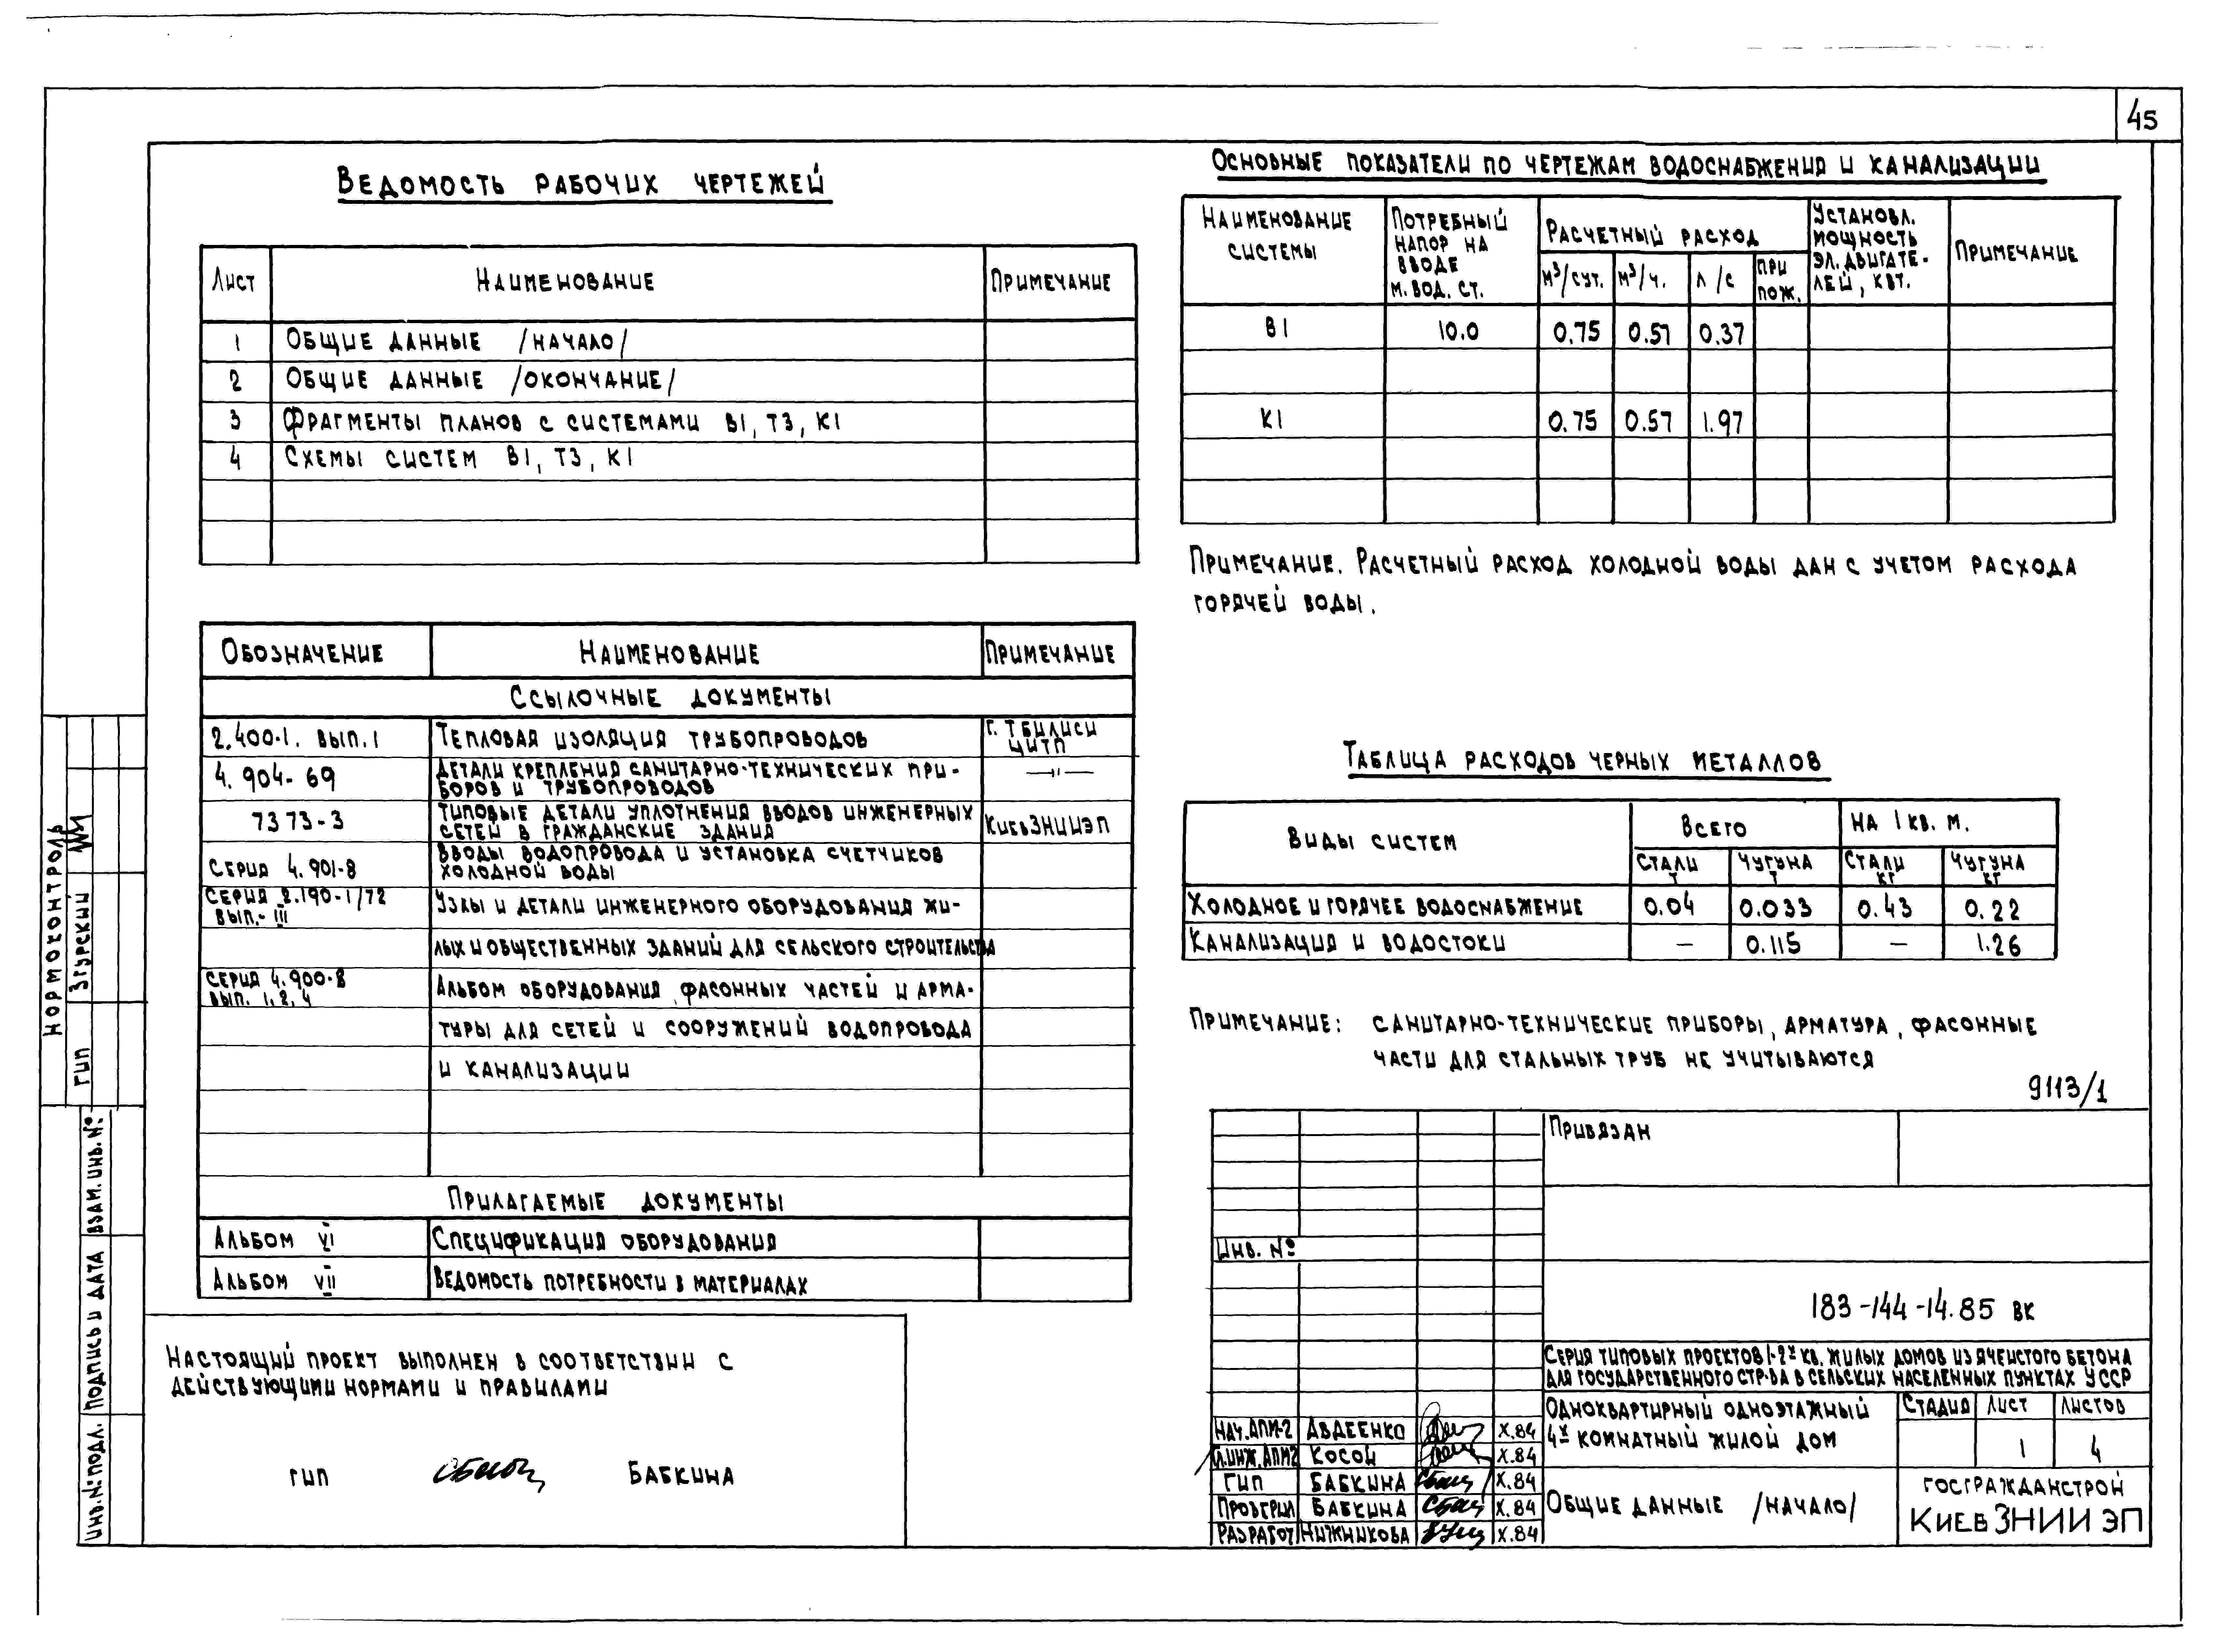 45
Ведомость рабочих чертежей
Лист Наименование Примечание
1 Общие данные /начало/
2 Общие данные /окончание/
3 Фрагменты планов с системами В1, Т3, К1
4 Схемы систем В1, Т3, К1
Обозначение Наименование Примечание
Ссылочные документы
2.400-1. вып.1 Тепловая изоляция трубопроводов г. Тбилиси ЦИТП
4.904-69 Детали крепления санитарно-технических при-
боров и трубопроводов —"—
7373-3 Типовые детали уплотнения вводов инженерных
сетей в гражданские здания КиевЗНИИЭП
Серия 4.901-8 Вводы водопровода и установка счетчиков
холодной воды
Серия 2.190-1/72
вып.- III Узлы и детали инженерного оборудования жи-
лых и общественных зданий для сельского строительства
Серия 4.900-8
вып. 1,2,4 Альбом оборудования, фасонных частей и арма-
туры для сетей и сооружений водопровода
и канализации
Прилагаемые документы
Альбом VI Спецификация оборудования
Альбом VII Ведомость потребности в материалах
Настоящий проект выполнен в соответствии с
действующими нормами и правилами
ГИП Бабкина
Основные показатели по чертежам водоснабжения и канализации
Наименование системы Потребный напор на вводе м. вод. ст. Расчетный расход Установл. мощность эл. двигате-лей, квт. Примечание
м³/сут. м³/ч. л/с при пож.
В1 10.0 0.75 0.57 0.37
К1 0.75 0.57 1.97
Примечание. Расчетный расход холодной воды дан с учетом расхода
горячей воды.
Таблица расходов черных металлов
Виды систем Всего на 1 кв. м.
стали т чугуна т стали кг чугуна кг
Холодное и горячее водоснабжение 0.04 0.033 0.43 0.22
Канализация и водостоки — 0.115 — 1.26
Примечание: санитарно-технические приборы, арматура, фасонные
части для стальных труб не учитываются
9113/1
Привязан
Инв. №
183-144-14.85 ВК
Серия типовых проектов 1-2х кв. жилых домов из ячеистого бетона
для государственного стр-ва в сельских населенных пунктах УССР
Одноквартирный одноэтажный
4х комнатный жилой дом
Стадия Лист Листов
1 4
Общие данные /начало/
Госгражданстрой
КиевЗНИИЭП
Нач.АПМ-2 Авдеенко X.84
Гл.инж.АПМ2 Косой X.84
ГИП Бабкина X.84
Проверил Бабкина X.84
Разработ Нижникова X.84
Нормоконтроль
ГИП Згурский
Инв.№ подл. Подпись и дата Взам. инв. №